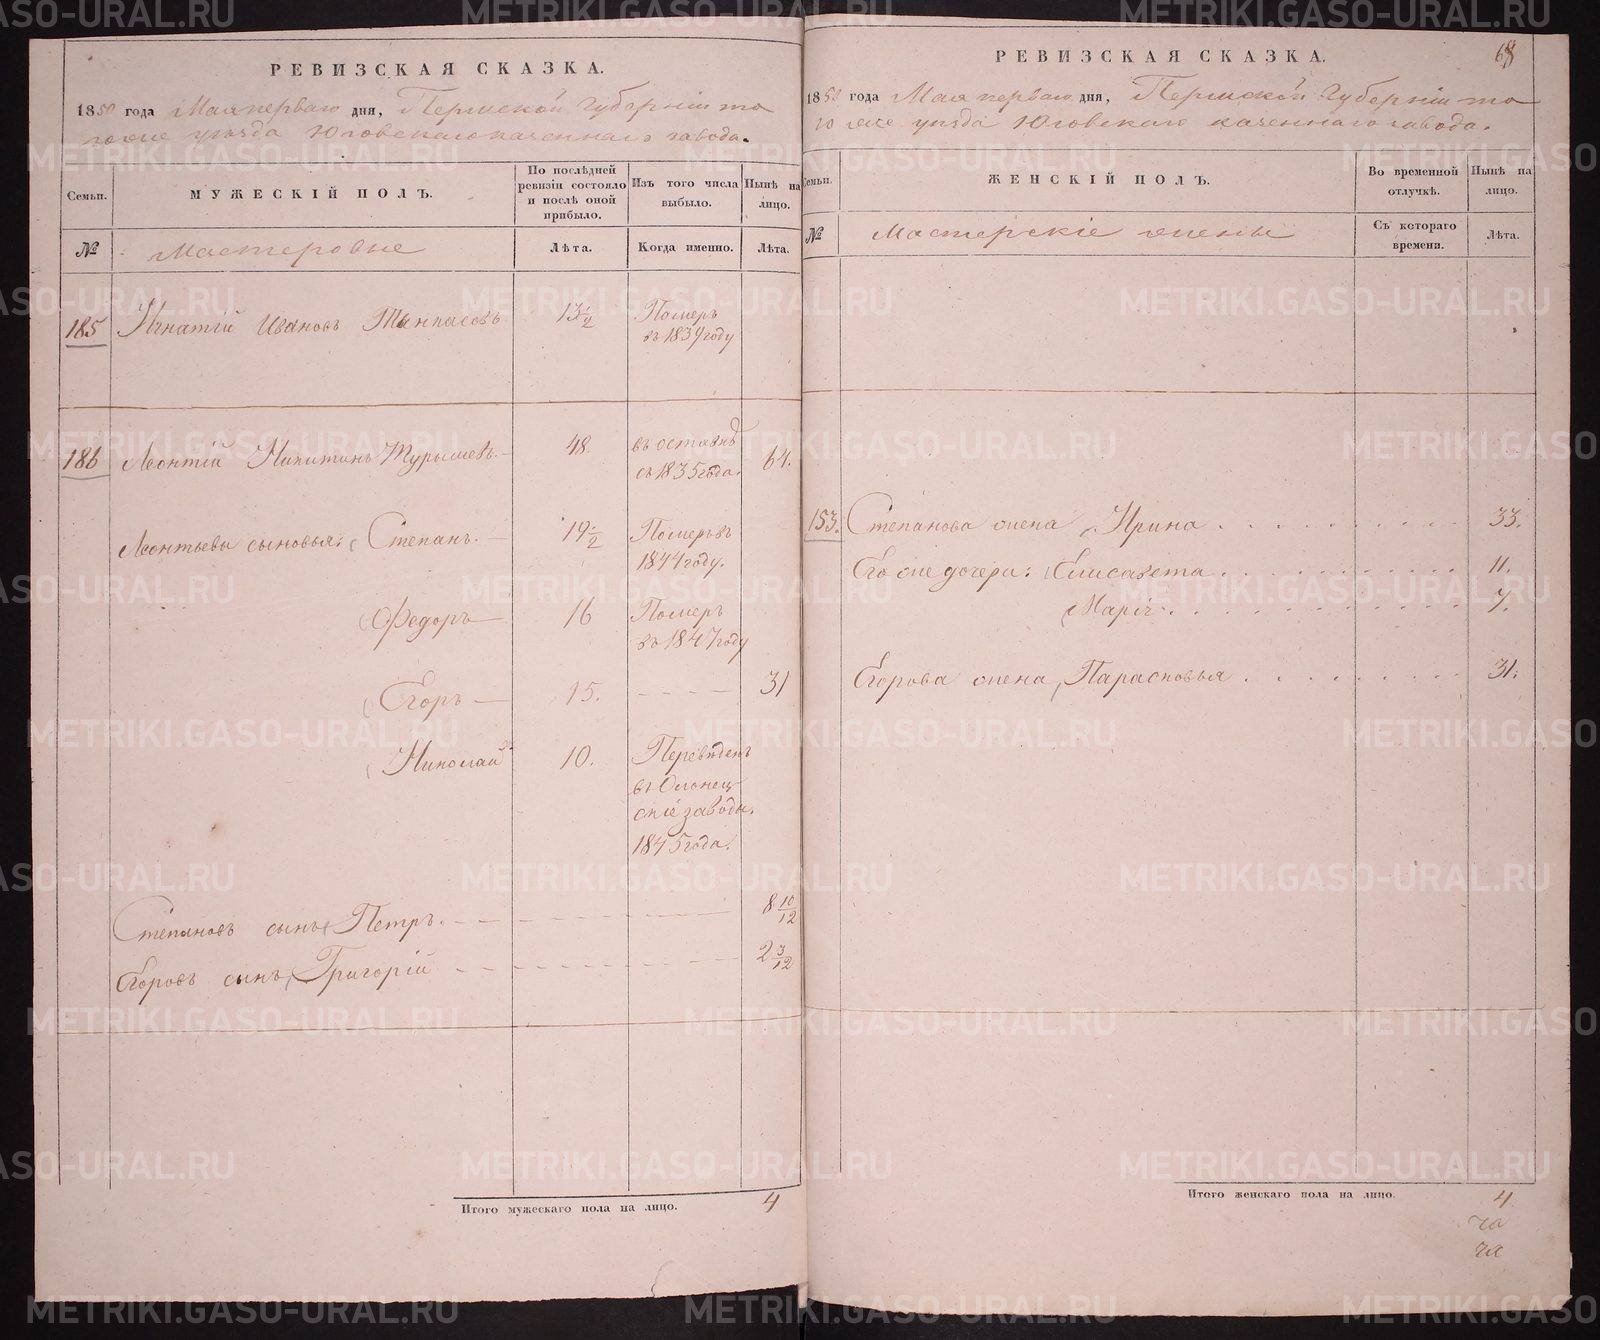 РЕВИЗСКАЯ СКАЗКА.
1850 года Мая перваго дня, Пермской Губерніи то
гоже уѣзда Юговскаго казеннаго завода.
Семьи.
МУЖЕСКІЙ ПОЛЪ.
По послѣдней
ревизіи состояло
и послѣ оной
прибыло.
Изъ того числа
выбыло.
Нынѣ на
лицо.
№
Мастеровые
Лѣта.
Когда именно.
Лѣта.
185
Игнатій Ивановъ
13 1/2
Померъ
въ 1839 году
186
Леонтій Никитинъ Турышевъ.
48.
въ оставкѣ
съ 1835 года.
64.
Леонтьевы сыновья: Степанъ.
19 1/2
Померъ въ
1844 году.
Федоръ
16
Померъ
въ 1847 году
Егоръ
15.
31
Николай
10.
Переведенъ
въ Олонец-
скіе заводы.
1845 года.
Степановъ сынъ, Петръ.
8 10/12
Егоровъ сынъ, Григорій
2 3/12
Итого мужескаго пола на лицо.
4
68
РЕВИЗСКАЯ СКАЗКА.
1850 года Мая перваго дня, Пермской Губерніи то
го же уѣзда Юговскаго казеннаго завода.
Семьи.
ЖЕНСКІЙ ПОЛЪ.
Во временной
отлучкѣ.
Нынѣ на
лицо.
№
Мастерскіе жены
Съ котораго
времени.
Лѣта.
153.
Степанова жена, Ирина
33.
Его же дочери: Елисавета
11.
Марія
7.
Егорова жена, Парасковья
31.
Итого женскаго пола на лицо.
4
METRIKI.GASO-URAL.RU